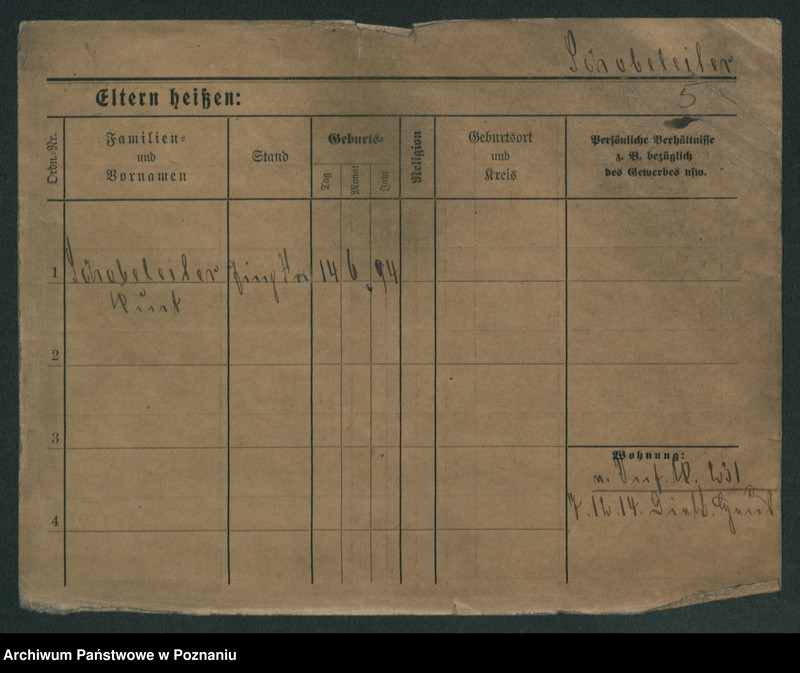 Schobeleiler
5
Eltern heißen:
Ordn.-Nr.
Familien-
und
Vornamen
Stand
Geburts-
Tag
Monat
Jahr
Religion
Geburtsort
und
Kreis
Persönliche Verhältnisse
z. B. bezüglich
des Gewerbes usw.
1 Schobeleiler 14 6. 94
Kurt
2
3
4
Wohnung:
n. 231
7.12.14.
Archiwum Państwowe w Poznaniu